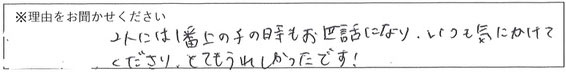 ※理由をお聞かせください
2人には1番上の子の時もお世話になり、いつも気にかけて
くださり、とてもうれしかったです！